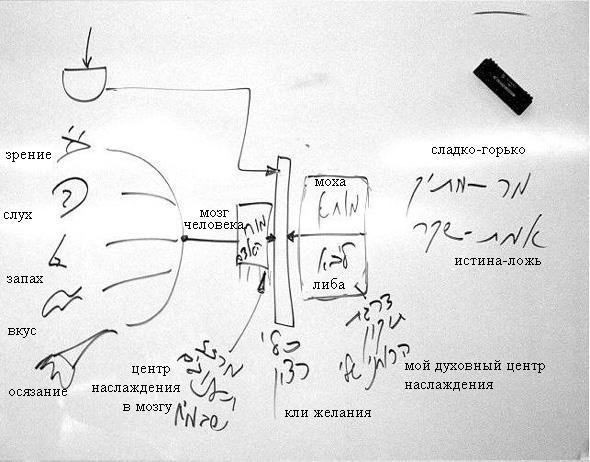 зрение
слух
запах
вкус
осязание
мозг
человека
моха
מוחא
ליבא
либа
центр
наслаждения
в мозгу
כלי
רצון
кли желания
мой духовный центр
наслаждения
сладко-горько
מר - מתוק
אמת - שקר
истина-ложь